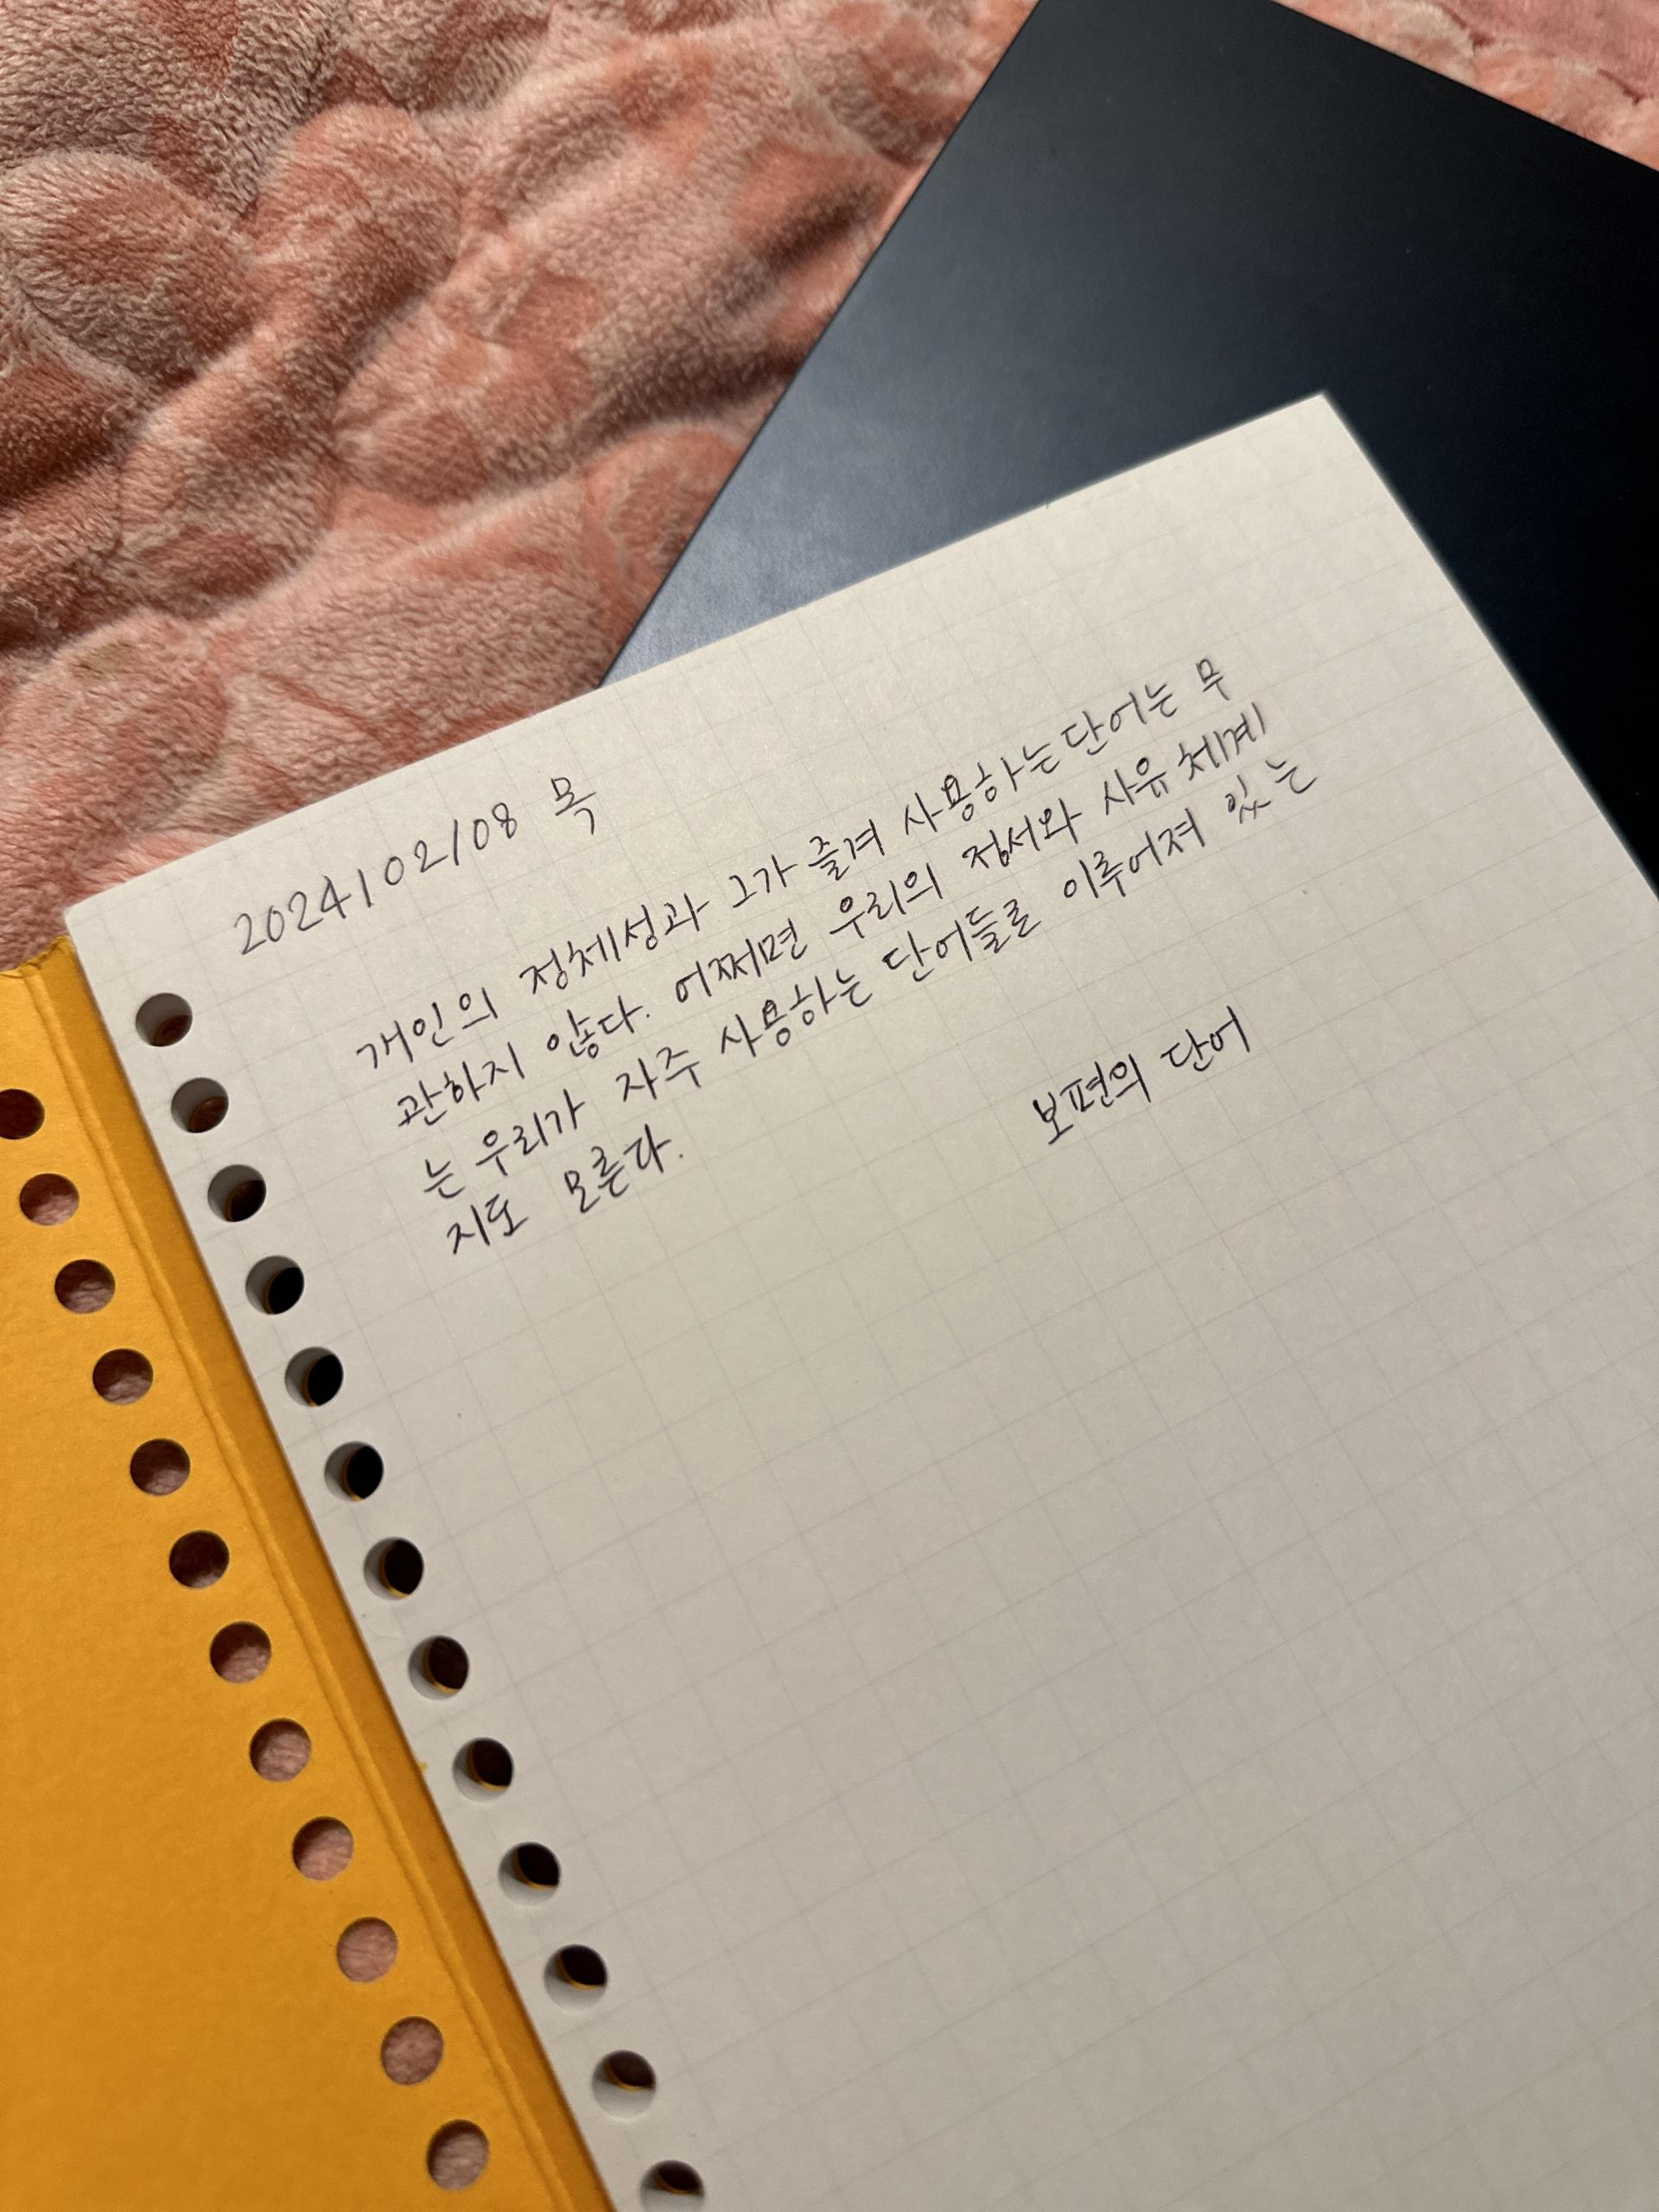 2024/02/08 목
개인의 정체성과 그가 즐겨 사용하는 단어는 무
관하지 않다. 어쩌면 우리의 정서와 사유 체계
는 우리가 자주 사용하는 단어들로 이루어져 있는
지도 모른다.
보편의 단어